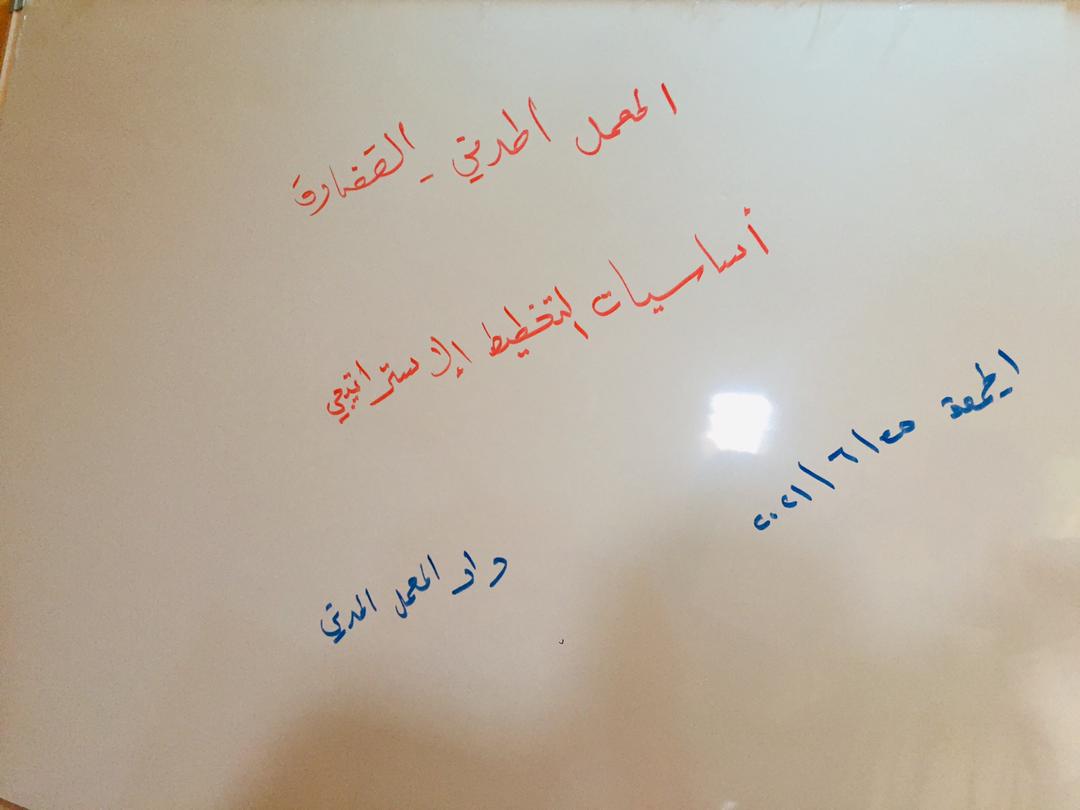 المعمل المدني - القضارف
أساسيات التخطيط الإستراتيجي
الجمعة ٢٥/٦/٢٠٢١
دار المعمل المدني